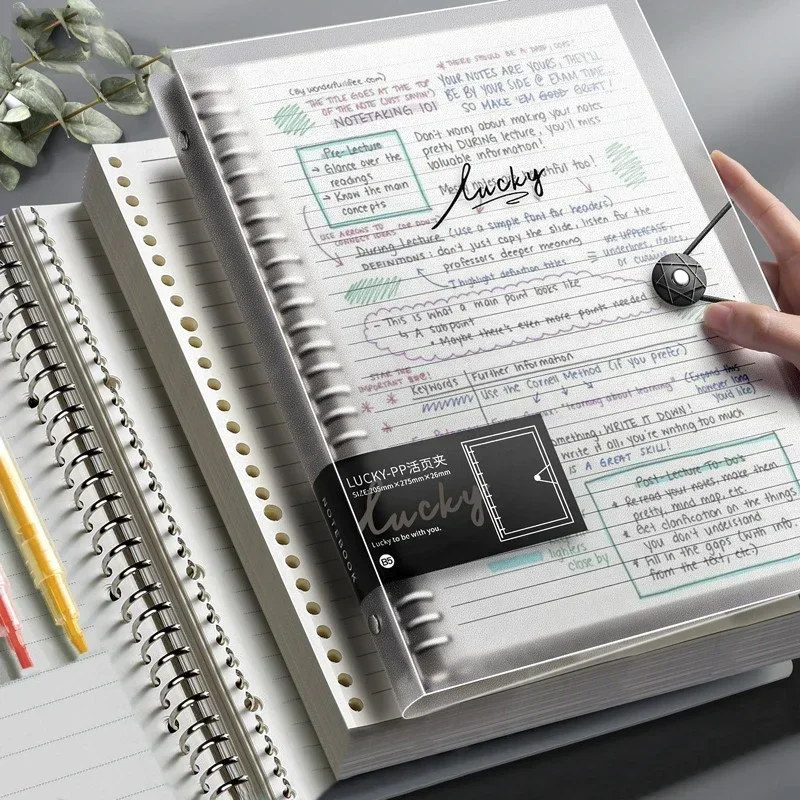 (By wonderfulifee.com)
THE TITLE GOES AT THE TOP
OF THE NOTE (JUST SAYIN')
NOTETAKING 101
* THERE SHOULD BE A
YOUR NOTES ARE YOURS, THEY'LL
BE BY YOUR SIDE @ EXAM TIME
SO MAKE 'EM GOOD GREAT!
Pre-Lecture
→ Glance over the
readings
→ Know the main
concepts
Don't worry about making your notes
pretty DURING lecture, you'll miss
valuable information!
lucky
too!
USE ARROWS TO
CONNECT IDEAS (OR DON'T
During Lecture (Use a simple font for headers)
DEFINITIONS: don't just copy the slide, listen for the
professors deeper meaning
↑ highlight definition titles
= use UPPERCASE,
underlines, italics,
or cursive
- This is what a main point looks like
↳ A subpoint
* Maybe there's even more points needed
THE
IMPORTANT
Keywords
Further Information
Use the Cornell Method (if you prefer)
"learning about learning"
(Expand this
however long
you'd like)
something, WRITE IT DOWN!
write it all, you're writing too much
IS A GREAT SKILL!
Post Lecture To-Do's
* Re-read your notes, make them
pretty, mind map, etc.
* Get clarification on the things
you don't understand
* Fill in the gaps (with info.
from the text, etc.)
close by
NOTEBOOK
LUCKY-PP活页夹
SIZE:205mm×275mm×26mm
lucky
Lucky to be with you.
B5